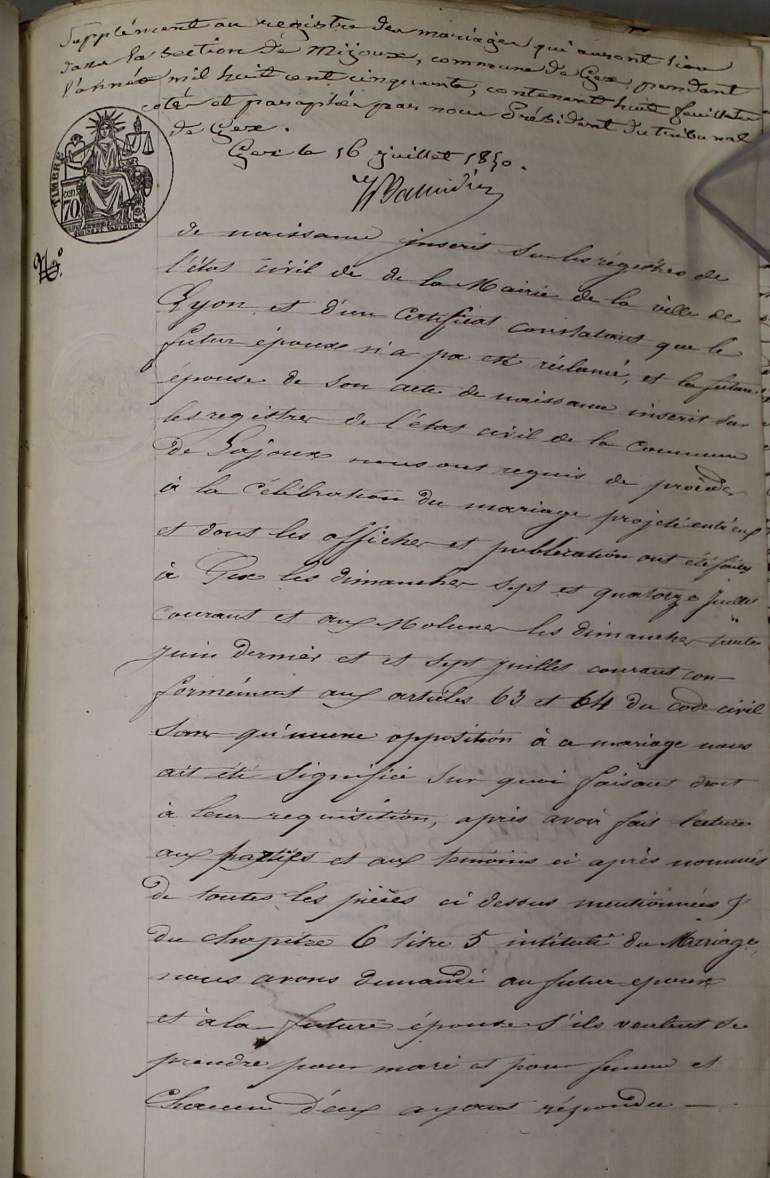 Supplément au registre des mariages qui auront lieu
dans la section de Mijoux, commune de Gex, pendant
l'année mil huit cent cinquante, contenant huit feuillets
coté et paraphée par nous Président du tribunal
de Gex.
Gex le 16 juillet 1850.
TIMBRE
70
de naissance inscrit sur les régistres de
l'état civil de de la Mairie de la ville de
Lyon, et d'un Certificat constatant que le
futur époux n'a pas été réclamé, et la future
épouse de son acte de naissance inscrit sur
les registres de l'état civil de la commune
de Lajoux nous ont requis de procéder
à la célébration du mariage projeté entr'eux
et dont les affiches et publication ont été faites
à Gex les dimanches sept et quatorze juillet
courant et aux Molunes les dimanches trente
juin dernier et et sept juillet courant con-
formément aux articles 63 et 64 du code civil
sans qu'aucune opposition à ce mariage nous
ait été signifiée sur quoi faisant droit
à leur requisition, après avoir fait lecture
aux parties et aux temoins ci après nommés
de toutes les pièces ci dessus mentionnées &
du chapitre 6 titre 5 intitulé du Mariage,
nous avons demandé au futur epoux
et à la future épouse s'ils veulent se
prendre pour mari et pour femme et
Chacun d'eux ayant répondu —